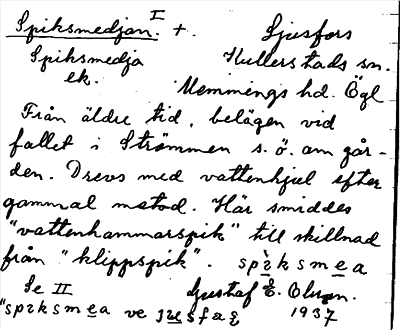 Spiksmedjan. I + Ljusfors
Spiksmedja Kullerstads sn.
ek. Memmings hd. Ögl
Från äldre tid, belägen vid
fallet i Strömmen s. ö. om går-
den. Drevs med vattenhjul efter
gammal metod. Här smiddes
"vattenhammarspik" till skillnad
från "klippspik". spɩksmea
Se II Gustaf E. Olsson.
"spɩksmea ve 1937